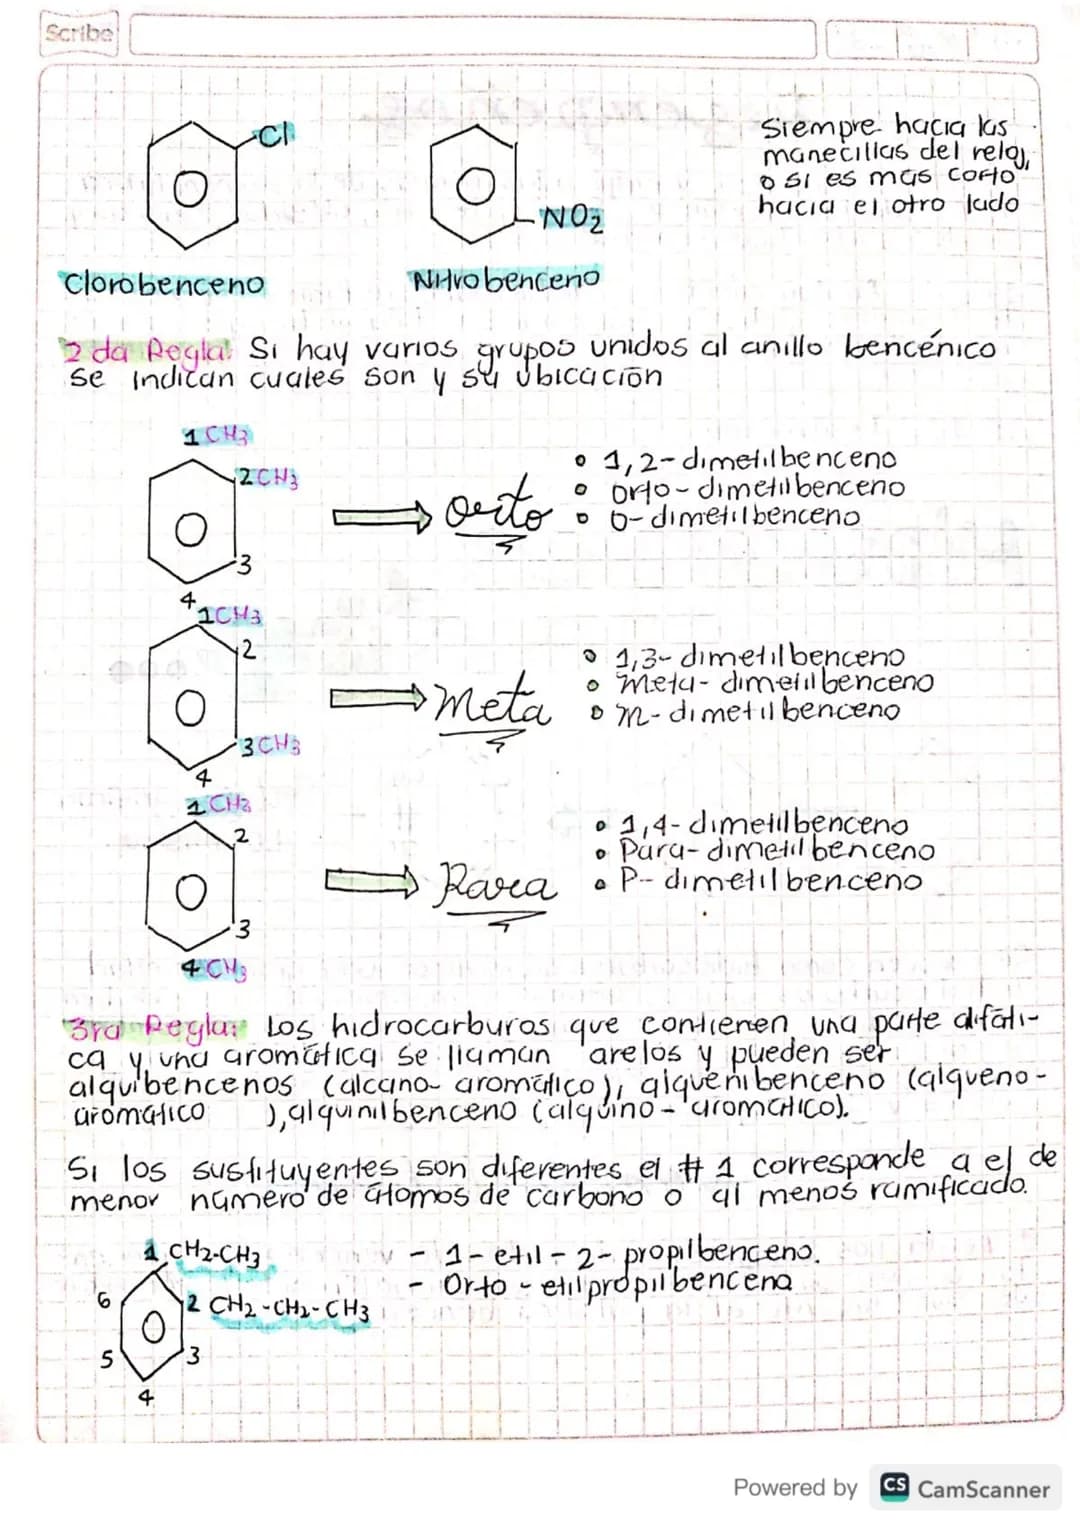 Scribe
Cl
NO2
Siempre hacia las
manecillas del reloj,
o si es mas corto
hacia el otro lado
Clorobenceno
Nitrobenceno
2 da Regla: Si hay varios grupos unidos al anillo bencénico
se indican cuales son y su ubicación
1 CH3
2 CH3
3
4
orto
1,2-dimetilbenceno
orto-dimetilbenceno
o-dimetilbenceno
1 CH3
2
3 CH3
4
meta
1,3-dimetilbenceno
meta-dimetilbenceno
m-dimetilbenceno
1 CH3
2
3
4 CH3
Para
1,4-dimetilbenceno
Para-dimetilbenceno
P-dimetilbenceno
3ra Regla: Los hidrocarburos que contienen una parte alifáti-
ca y una aromática se llaman arelos y pueden ser
alquibencenos (alcano-aromático), alquenibenceno (alqueno-
aromático ), alquinilbenceno (alquino-aromático).
Si los sustituyentes son diferentes el # 1 corresponde a el de
menor número de átomos de carbono o al menos ramificado.
1 CH2-CH3
2 CH2-CH2-CH3
3
4
5
6
- 1-etil-2-propilbenceno.
- Orto-etilpropilbencena
Powered by CS CamScanner